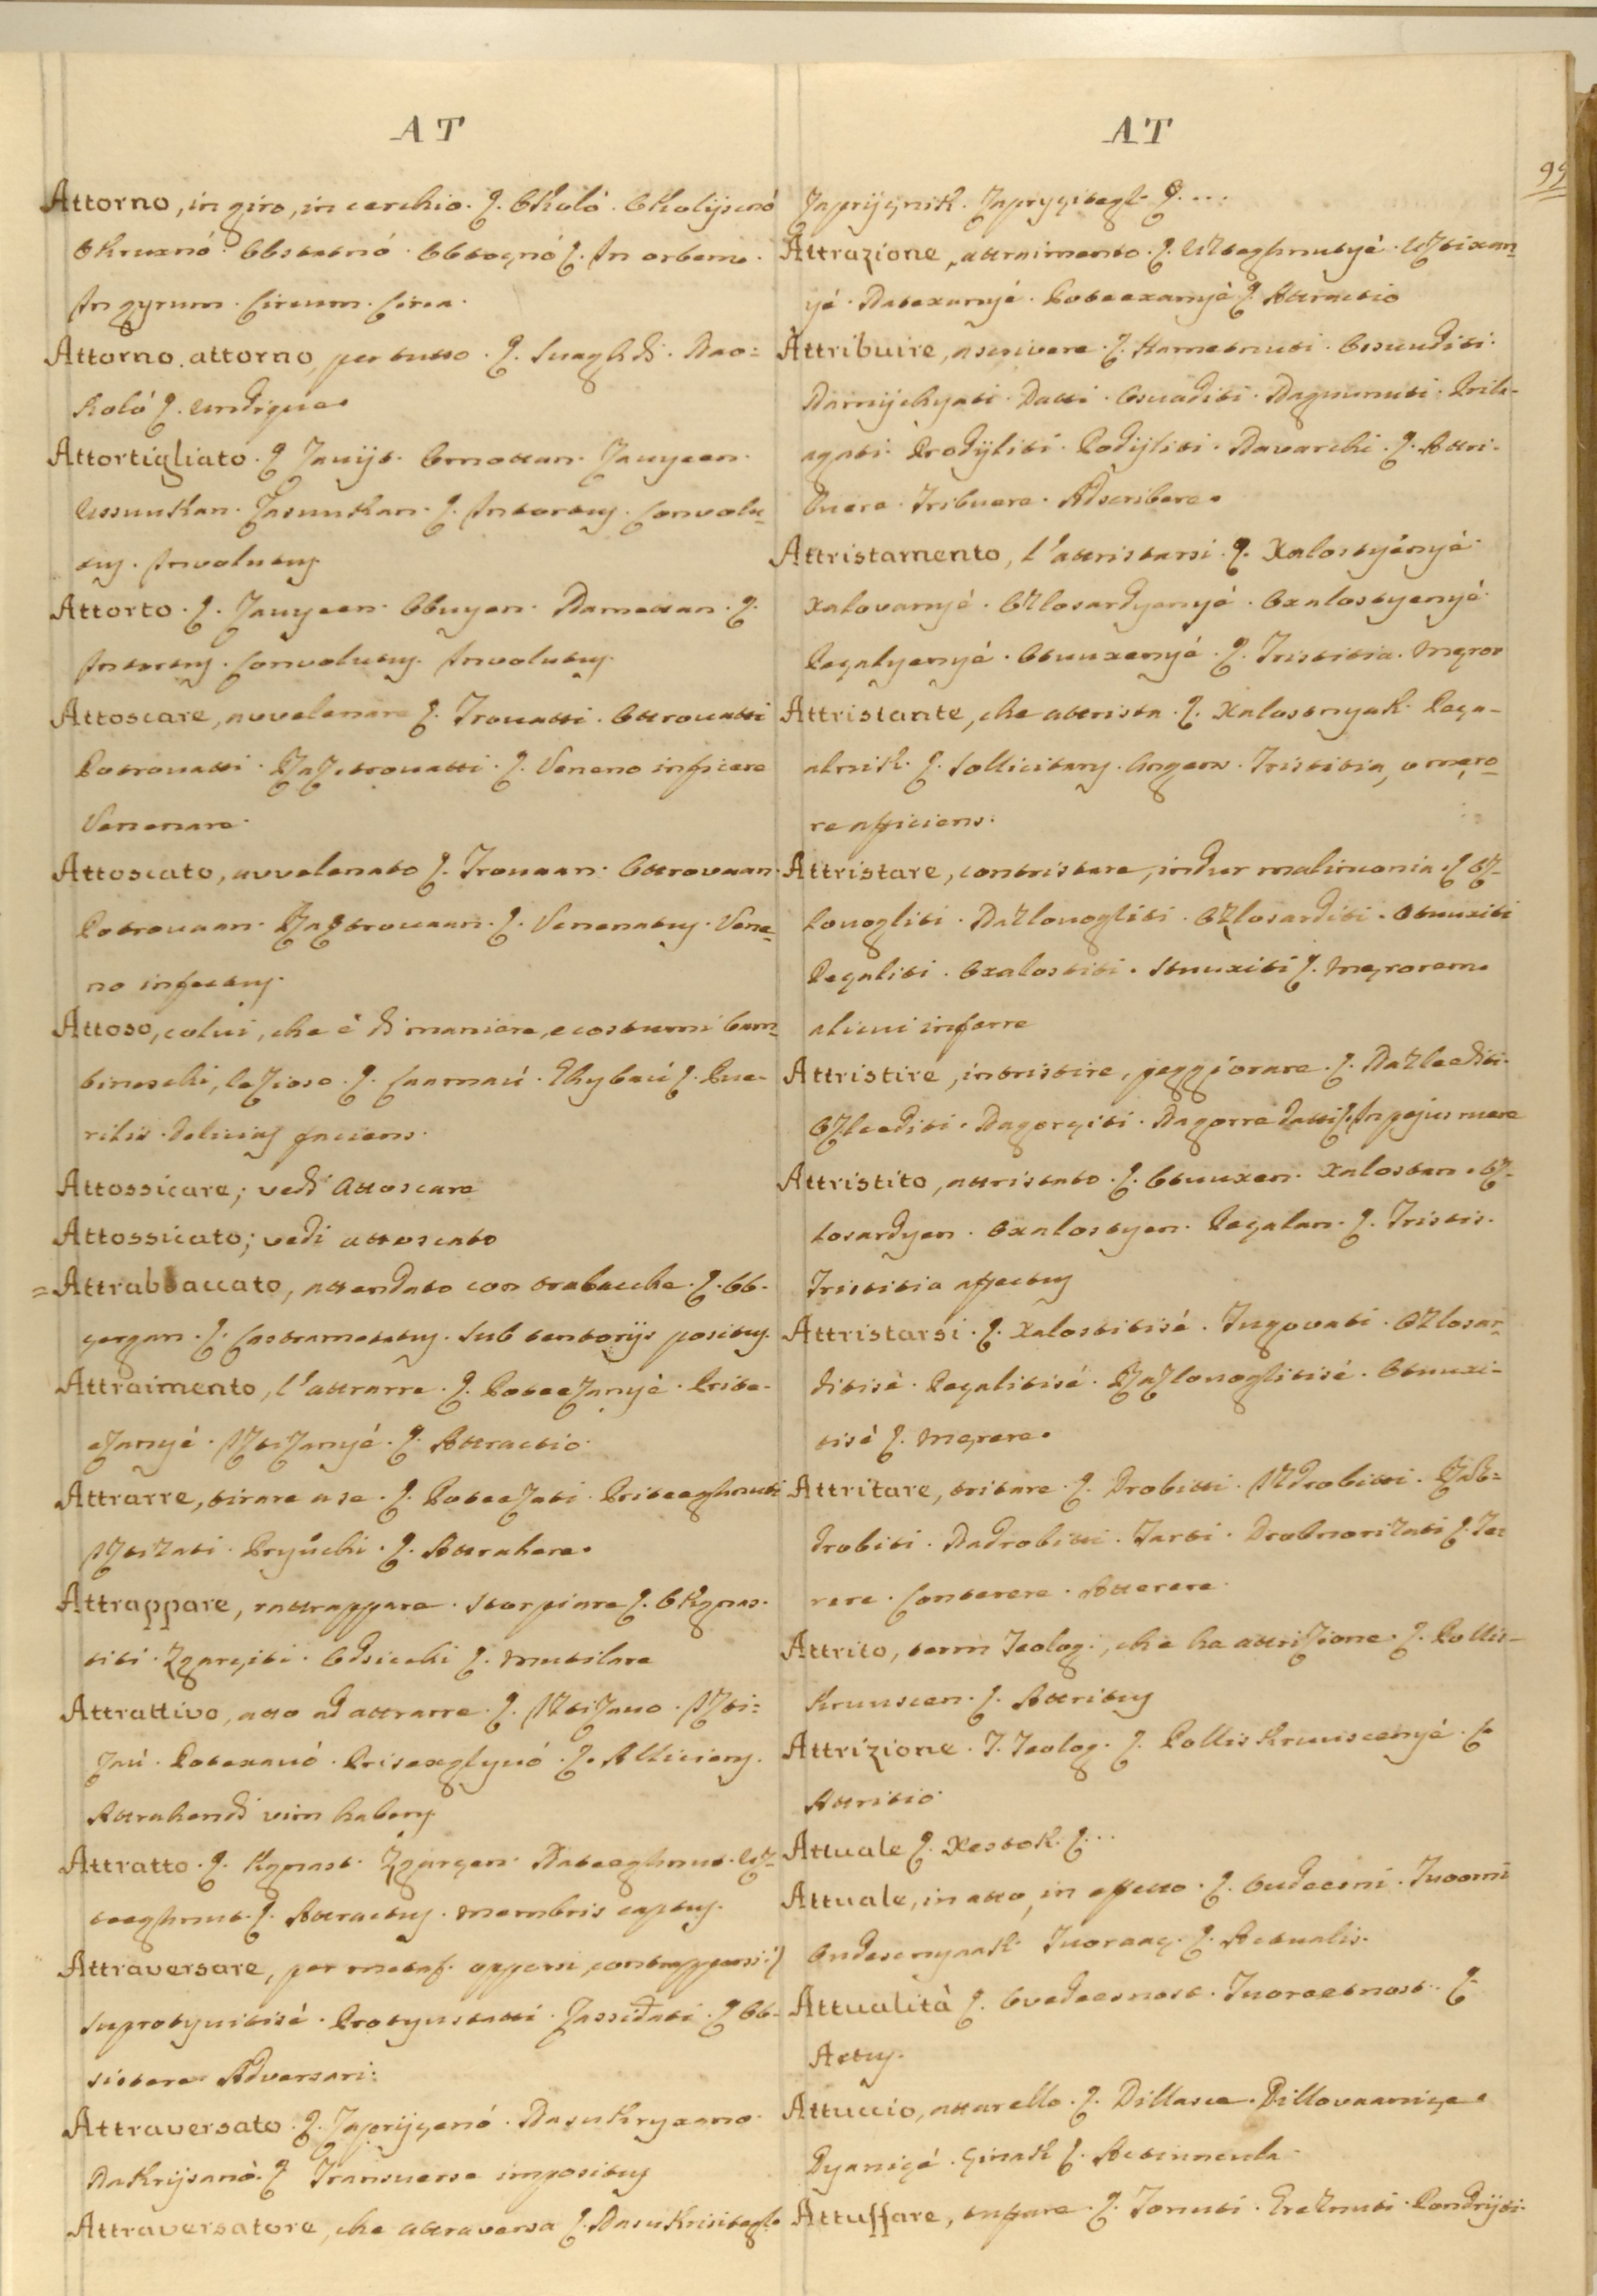 AT
Attorno, in giro, in cerchio. Ɋ. Okoló. Okolijscnó
Okruxnó. Obstatnó. Obtocnó Ɋ. In orbem.
In gyrum. Circum. Circa.
Attorno attorno, per tutto. Ɋ. Suaghdi. Nao=
koló Ɋ. Undique.
Attortigliato. Ɋ Zauijt. Omottan. Zauyeen.
Ussukan. Zasuukan. Ɋ. Intortus. Convolu=
tus. Involutus.
Attorto. Ɋ. Zauyeen. Obuyen. Namottan. Ɋ.
Intortus. Convolutus. Involutus.
Attoscare, avvelenare Ɋ. Trouatti. Ottrouatti
Potrouatti. Nazitrouatti. Ɋ. Veneno inficere
Venenare.
Attoscato, avvelenato Ɋ. Trouaan. Ottrovaan.
Potrouaan. Naztrouaan. Ɋ. Venenatus. Vene=
no infectus.
Attoso, colui, che è di maniere, e costumi bam=
bineschi, lezioso. Ɋ. Caamaú. Ghybaú Ɋ. Pue-
rilis. Delicias faciens.
Attossicare; vedi Attoscare
Attossicato; vedi attoscato
= Attrabaccato, attendato con trabacche. Ɋ. Ob-
gergan. Ɋ. Castrametatus. Sub tentorijs positus.
Attraimento, l'attrarre. Ɋ. Poteezanyé. Prite-
ezanyé. Iztizanyé. Ɋ. Attractio.
Attrarre, tirare a se. Ɋ. Poteezati. Priteeghnuti
Iztizati. Pryúchi. Ɋ. Attrahere.
Attrappare, rattrappare. Storpiare Ɋ. Okgnas-
titi. Zgarciti. Odsicchi Ɋ. Mutilare
Attrattivo, atto ad attrarre. Ɋ. Iztizauo. Izti=
zaú. Potexauó. Pritexglyuó. Ɋ. Alliciens.
Attrahendi vim habens.
Attratto. Ɋ. Kgnast. Zgarcen. Nateeghnut. Uz-
teeghnut. Ɋ. Attractus. Membris captus.
Attraversare, per metaf. opporsi, contrapporsi Ɋ
Suprotyuitisé. Protyustatti. Zassidati. Ɋ Ob-
sistere. Adversari.
Attraversato. Ɋ. Zaprijcenó. Nasukryxano.
Nakrijsanó. Ɋ Transverse impositus
Attraversatore, che attraversa Ɋ. Nasukrisitegl.
AT
99
Zaprijcnik. Zaprycitegl. Ɋ. ...
Attrazione, attraimento. Ɋ. Uzteghnutyé. Uztixan=
yé. Natexanyé. Poteexanyé Ɋ Attractio
Attribuire, ascrivere. Ɋ. Nametnuti. Ossuuditi.
Damijchyati. Datti. Osuaditi. Nagnunuti. Prila-
agati. Prodijliti. Podijliti. Navarchi. Ɋ. Attri-
buere. Tribuere. Adscribere.
Attristamento, l'attristarsi. Ɋ. Xalostyényé.
Xalovanyé. Ozlosardyenyé. Oxalostyenyé.
Pegalyenyé. Otuuxenyé. Ɋ. Tristitia. Męror
Attristante, che attrista. Ɋ. Xalostnyak. Pega-
alnik. Ɋ. Sollicitans. Angens. Tristitia, o męro=
re afficiens.
Attristare, contristare, indur malinconia. Ɋ Oz-
louogliti. Nazlouogliti. Ozlosarditi. Otuuxiti
Pegaliti. Oxalostiti. Stuuxiti Ɋ. Męrorem
alicui inferre
Attristire, intristire, peggiorare. Ɋ. Nazleediti.
Ozleediti. Nagorciti. Nagorre datti Ɋ. In pejus ruere
Attristito, attristato. Ɋ. Otuuxen. Xalostan. Oz-
losardyen. Oxalostyen. Pegalan. Ɋ. Tristis.
Tristitia affectus
Attristarsi. Ɋ. Xalostitisé. Tugovati. Ozlosar=
ditisé. Pegalitisé. Nazlouoglitisé. Otuuxi-
tisé Ɋ. Męrere.
Attritare, tritare. Ɋ. Drobitti. Izdrobitti. Raz=
drobiti. Nadrobitti. Tarti. Drobnorizati Ɋ. Te=
rere. Conterere. Atterere.
Attrito, term Teolog., che ha attrizione. Ɋ. Pollis-
kruuscen. Ɋ. Attritus
Attrizione. T. Teolog. Ɋ. Polliskruuscenyé. Ɋ
Attritio.
Attuale Ɋ. Xestok. Ɋ...
Attuale, in atto, in effetto. Ɋ. Oudeesni. Tuorni
Oudescnyaak. Tuoraac. Ɋ. Actualis.
Attualità Ɋ. Ovdeesnost. Tuoreetnost. Ɋ
Actus.
Attuccio, attarello. Ɋ. Dillasce. Dillovaanice.
Dyanicé. Ginak Ɋ. Actiuncula.
Attuffare, tuffare. Ɋ. Tonuti. Greznuti. Pondrijti.